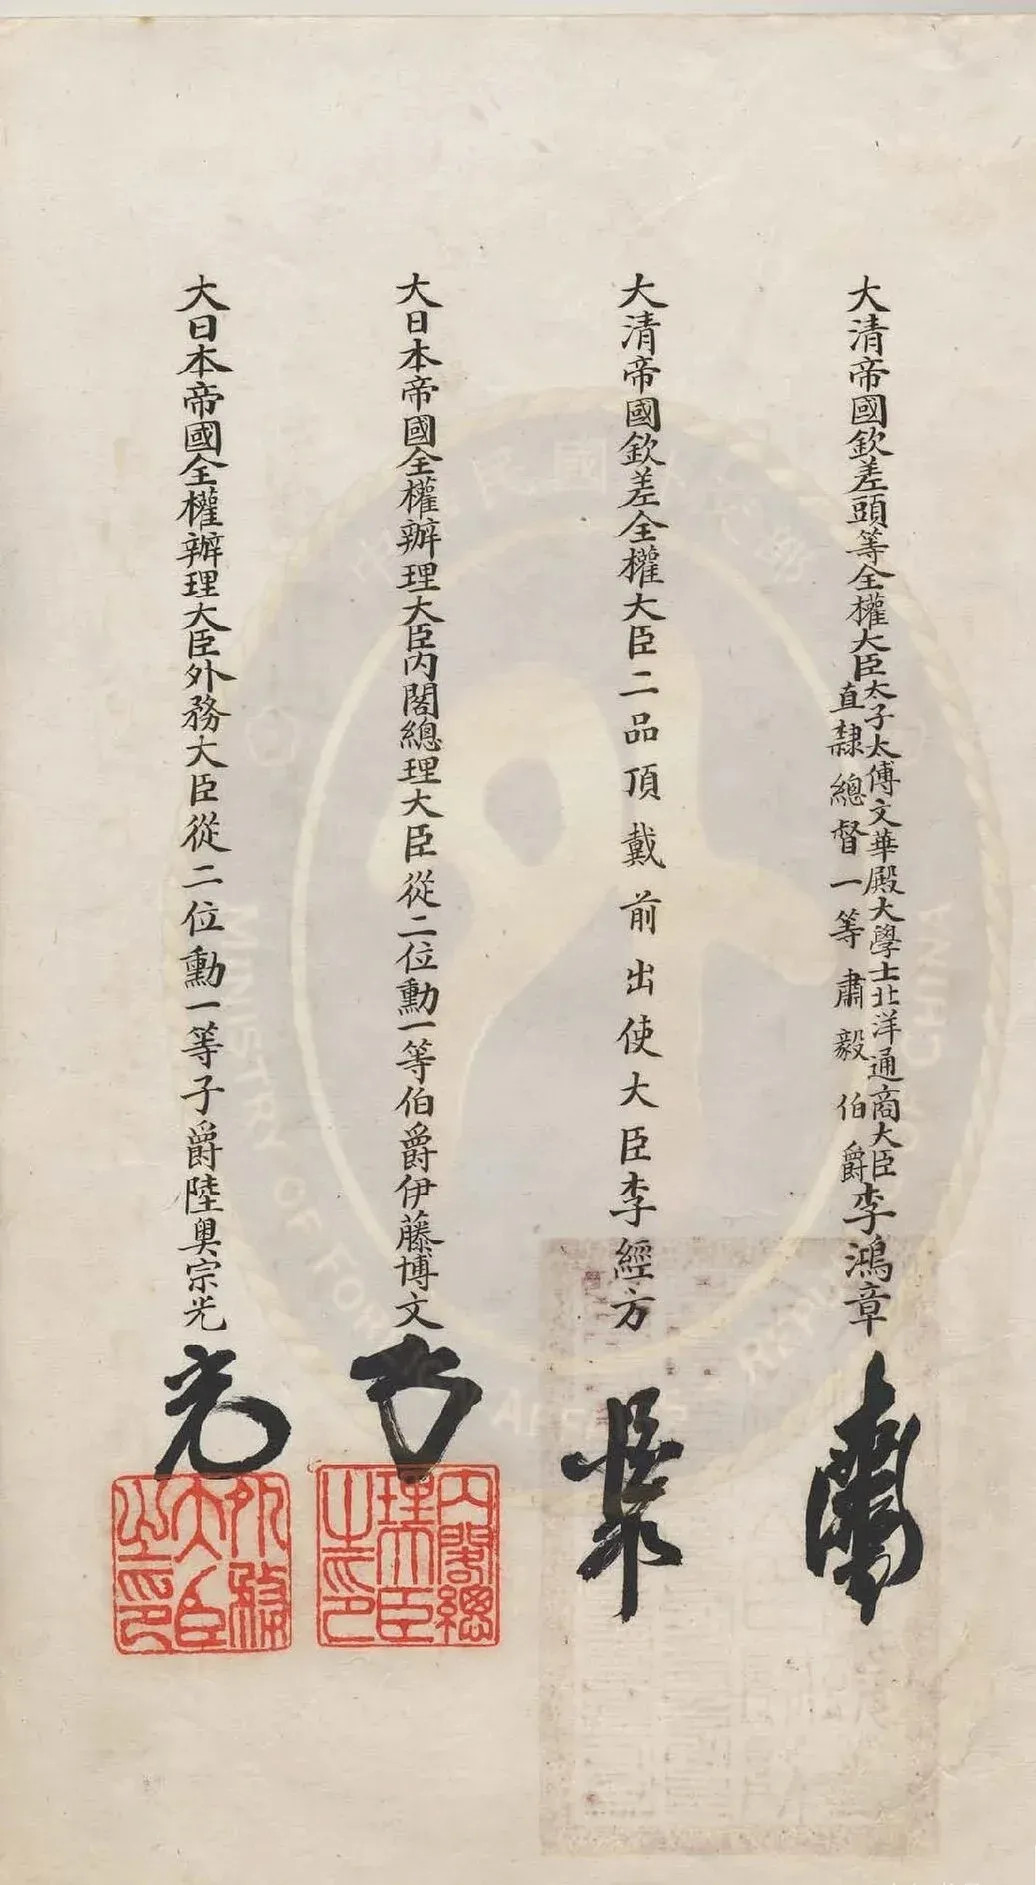 大清帝國欽差頭等全權大臣太子太傅文華殿大學士北洋通商大臣
直隸總督一等肅毅伯爵李鴻章
大清帝國欽差全權大臣二品頂戴前出使大臣李經方
大日本帝國全權辦理大臣內閣總理大臣從二位勳一等伯爵伊藤博文
內閣總理大臣之印
大日本帝國全權辦理大臣外務大臣從二位勳一等子爵陸奧宗光
外務大臣之印
民國
MINISTRY OF FOREIGN AFFAIRS REPUBLIC OF CHINA